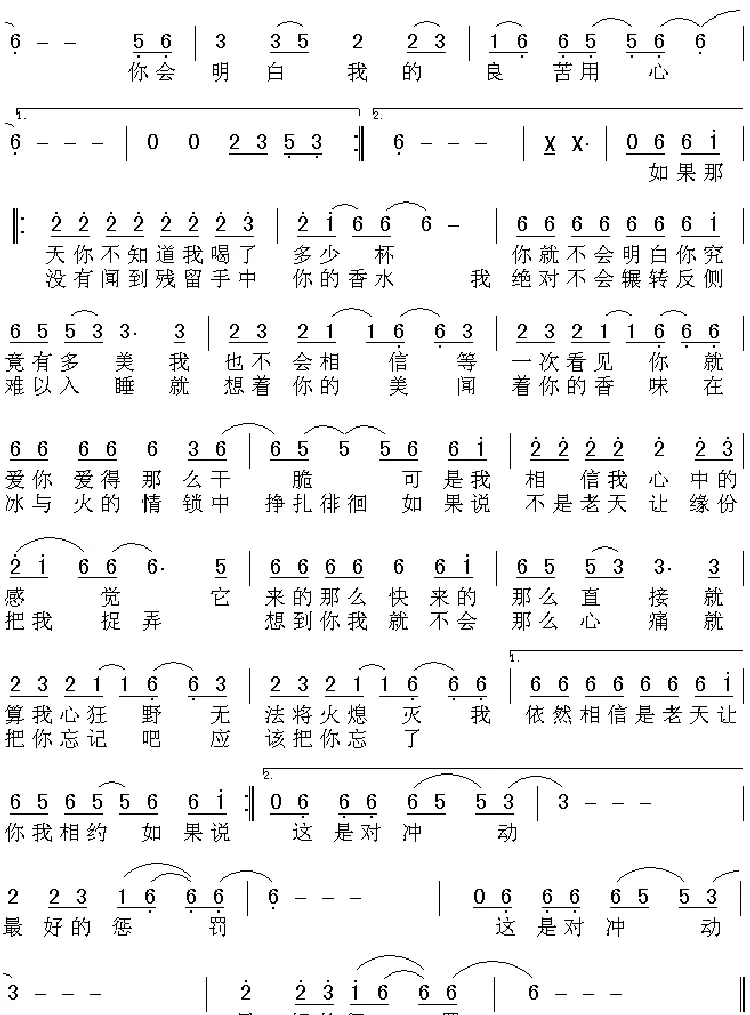 6 - - 5 6 | 3 3 5 2 2 3 | 1 6 6 5 5 6 6
你会 明 白 我 的 良 苦用 心
1.
2.
6 - - - | 0 0 2 3 5 3 :|| 6 - - - | X X· | 0 6 6 i
如果那
||: 2 2 2 2 2 2 2 3 | 2 i 6 6 6 - | 6 6 6 6 6 6 6 i
天你不知道我喝了 多少 杯 你就不会明白你究
没有闻到残留手中 你的香水 我 绝对不会辗转反侧
6 5 5 3 3· 3 | 2 3 2 1 1 6 6 3 | 2 3 2 1 1 6 6 6
竟有多 美 我 也不会相 信 等 一次看见 你 就
难以入 睡 就 想着你的 美 闻 着你的香 味 在
6 6 6 6 6 3 6 | 6 5 5 5 6 6 i | 2 2 2 2 2 2 3
爱你 爱得 那 么干 脆 可 是我 相 信我 心 中的
冰与 火的 情 锁中 挣扎徘徊 如 果说 不是老天 让 缘份
2 i 6 6 6· 5 | 6 6 6 6 6 6 i | 6 5 5 3 3· 3
感 觉 它 来的那么 快 来的 那么直 接 就
把我 捉弄 想到你我 就 不会 那么心 痛 就
1.
2 3 2 1 1 6 6 3 | 2 3 2 1 1 6 6 6 | 6 6 6 6 6 6 6 i
算我心狂 野 无 法将火熄 灭 我 依然相信是老天让
把你忘记 吧 应 该把你忘 了
2.
6 5 6 5 5 6 6 i :|| 0 6 6 6 6 5 5 3 | 3 - - -
你我相约 如 果说 这 是对 冲 动
2 2 3 1 6 6 6 | 6 - - - | 0 6 6 6 6 5 5 3
最 好的 惩 罚 这 是对 冲 动
3 - - - | 2 2 3 i 6 6 6 | 6 - - - ||